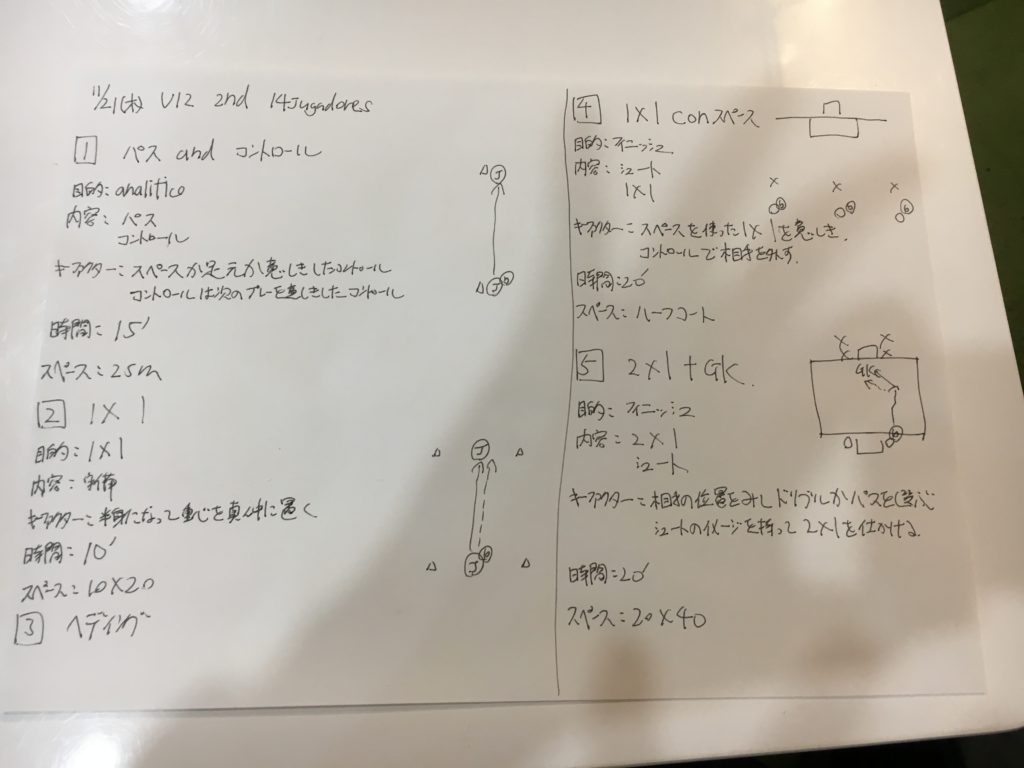 11/21(木) U12 2nd 14Jugadores
1 パス and コントロール
目的: analitico
内容: パス
コントロール
キーファクター: スペースか足元か意しきしたコントロール
コントロールは次のプレーを意しきしたコントロール
時間: 15'
スペース: 25m
J
J
2 1×1
目的: 1×1
内容: 守備
キーファクター: 半身になって重心を真ん中に置く
時間: 10'
スペース: 10×20
J
J
3 ヘディング
4 1×1 conスペース
目的: フィニッシュ
内容: シュート
1×1
キーファクター: スペースを使った1×1を意しき.
コントロールで相手を外す.
時間: 20'
スペース: ハーフコート
5 2×1+GK.
目的: フィニッシュ
内容: 2×1
シュート
キーファクター: 相手の位置をみしドリブルかパスを選ぶ
シュートのイメージを持って2×1を仕かける
時間: 20'
スペース: 20×40
GK